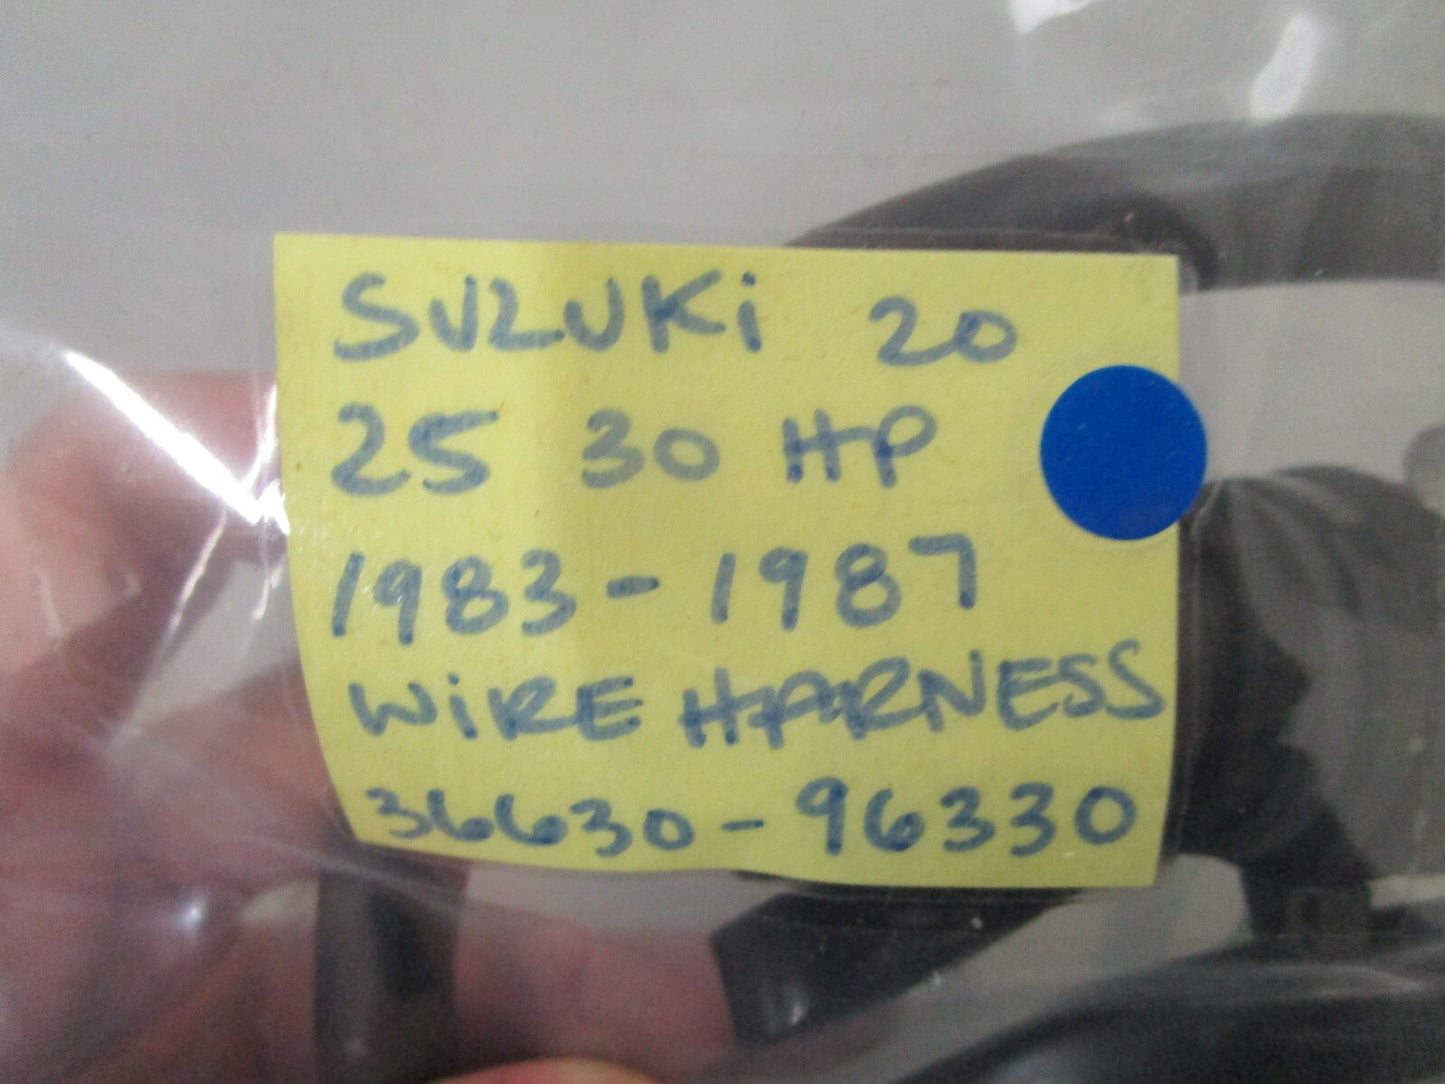 SUZUKi 20
25 30 HP
1983-1987
WiRE HARNESS
36630-96330